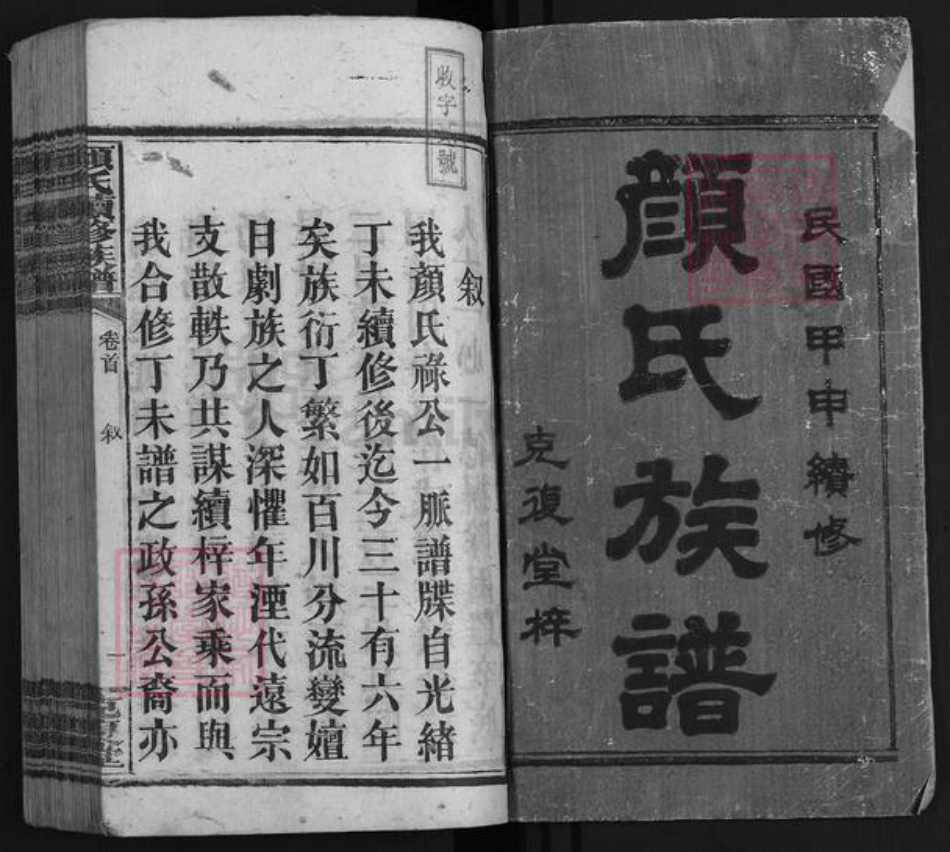 民國甲申續修
顔氏族譜
克復堂梓
收字 號
叙
我顔氏祿公一脈譜牒自光緒
丁未續修後迄今三十有六年
矣族衍丁繁如百川分流變嬗
日劇族之人深懼年湮代遠宗
支散軼乃共謀續梓家乘而與
我合修丁未譜之政孫公裔亦
顔氏續修族譜
卷首
叙
一
克復堂